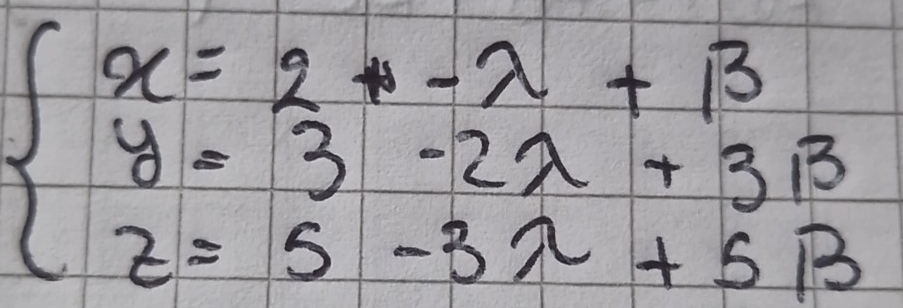 x = 2 + - λ + β
y = 3 - 2λ + 3β
z = 5 - 3λ + 5β